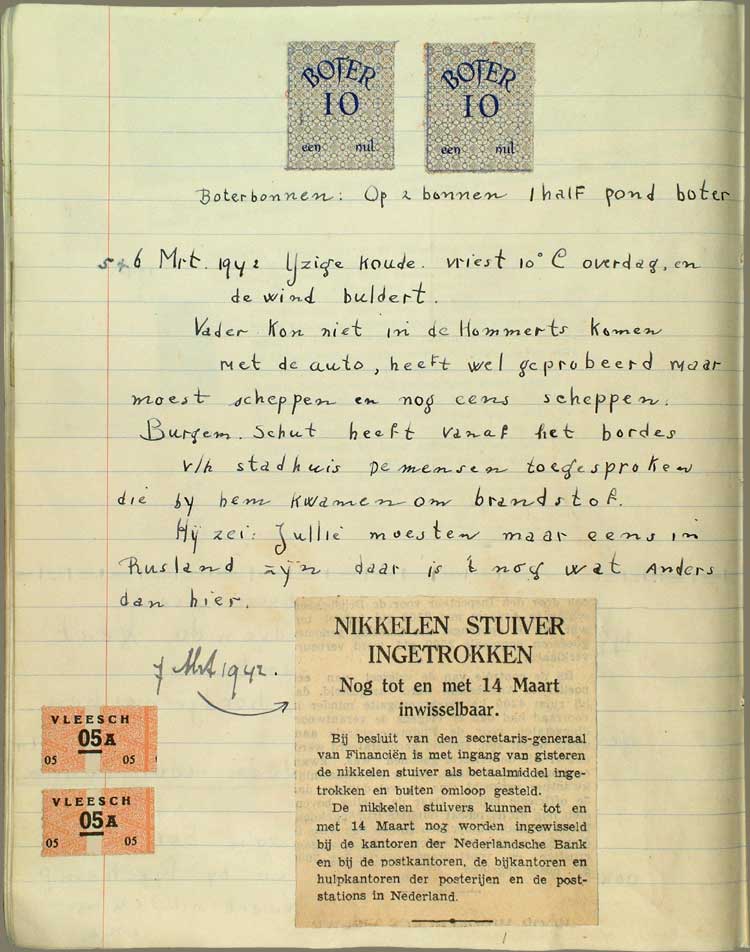 BOTER
10
een nul
BOTER
10
een nul
Boterbonnen: Op 2 bonnen 1 half pond boter
5+6 Mrt. 1942 Yzige koude. vriest 10° C overdag, en
de wind buldert.
Vader kon niet in de Hommerts komen
met de auto, heeft wel geprobeerd maar
moest scheppen en nog eens scheppen.
Burgem. Schut heeft vanaf het bordes
v/h stadhuis de mensen toegesproken
die by hem kwamen om brandstof.
Hij zei: Jullie moesten maar eens in
Rusland zyn daar is 't nog wat anders
dan hier.
7 Mrt 1942.
VLEESCH
05A
05 05
VLEESCH
05A
05 05
NIKKELEN STUIVER
INGETROKKEN
Nog tot en met 14 Maart
inwisselbaar.
Bij besluit van den secretaris-generaal
van Financiën is met ingang van gisteren
de nikkelen stuiver als betaalmiddel inge-
trokken en buiten omloop gesteld.
De nikkelen stuivers kunnen tot en
met 14 Maart nog worden ingewisseld
bij de kantoren der Nederlandsche Bank
en bij de postkantoren, de bijkantoren en
hulpkantoren der posterijen en de post-
stations in Nederland.